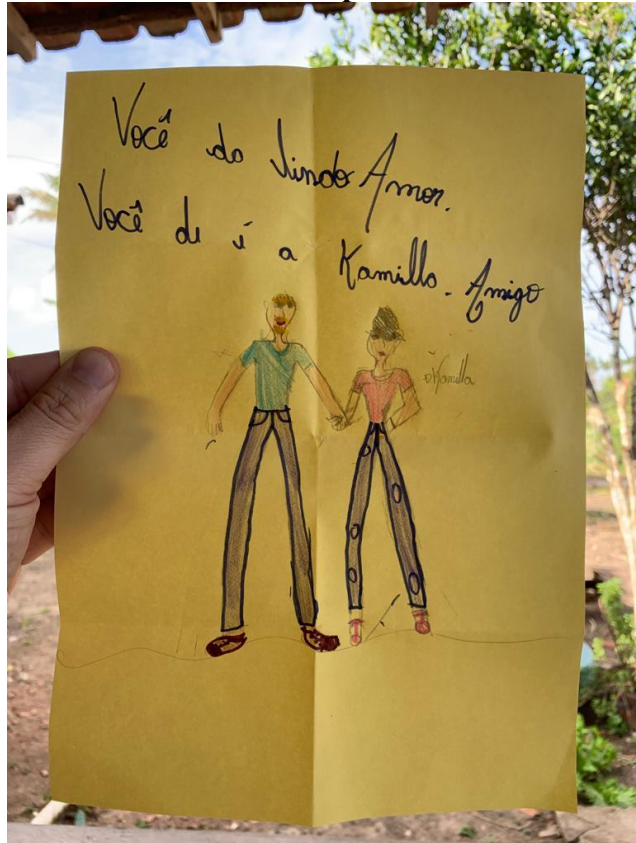 Você do lindo Amor.
Você de é a Kamilla. Amigo
Kamilla